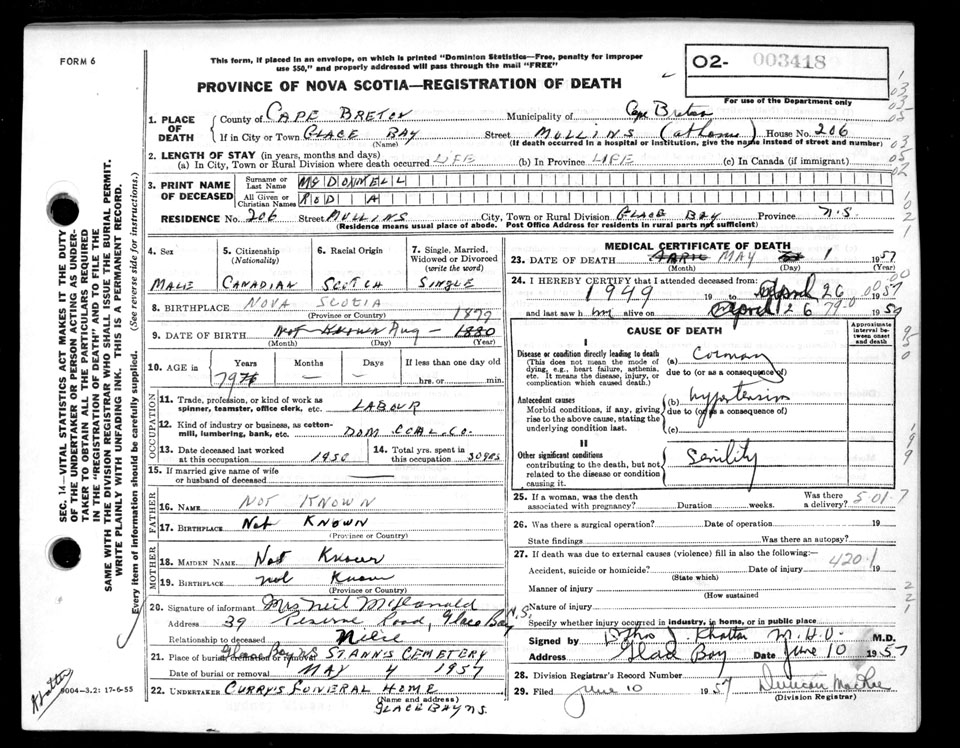 FORM 6
This form, if placed in an envelope, on which is printed "Dominion Statistics—Free, penalty for improper
use $50," and properly addressed will pass through the mail "FREE"
PROVINCE OF NOVA SCOTIA—REGISTRATION OF DEATH
O2- 003418
For use of the Department only
1. PLACE OF DEATH
County of CAPE BRETON Municipality of Cape Breton
If in City or Town GLACE BAY Street MULLINS (at home) House No. 206
(Name) (If death occurred in a hospital or institution, give the name instead of street and number)
2. LENGTH OF STAY (in years, months and days)
(a) In City, Town or Rural Division where death occurred LIFE (b) In Province LIFE (c) In Canada (if immigrant)
3. PRINT NAME OF DECEASED
Surname or Last Name McDONNELL
All Given or Christian Names ROD A
RESIDENCE No. 206 Street MULLINS City, Town or Rural Division GLACE BAY Province N.S.
(Residence means usual place of abode. Post Office Address for residents in rural parts not sufficient)
4. Sex 5. Citizenship (Nationality) 6. Racial Origin 7. Single, Married, Widowed or Divorced (write the word)
MALE CANADIAN SCOTCH SINGLE
8. BIRTHPLACE NOVA SCOTIA
(Province or Country)
1879
9. DATE OF BIRTH Not Known Aug — 1880
(Month) (Day) (Year)
10. AGE in Years Months Days If less than one day old
79 — — hrs. or min.
OCCUPATION
11. Trade, profession, or kind of work as spinner, teamster, office clerk, etc. LABOUR
12. Kind of industry or business, as cotton-mill, lumbering, bank, etc. DOM. COAL. CO.
13. Date deceased last worked at this occupation 1950 14. Total yrs. spent in this occupation 30 yrs
15. If married give name of wife or husband of deceased
FATHER
16. NAME NOT KNOWN
17. BIRTHPLACE Not KNOWN
(Province or Country)
MOTHER
18. MAIDEN NAME Not Known
19. BIRTHPLACE not Known
(Province or Country)
20. Signature of informant Mrs Neil McDonald
Address 39 Reserve Road, Glace Bay N.S.
Relationship to deceased Niece
21. Place of burial, cremation or removal Glace Bay NS ST ANN'S CEMETERY
Date of burial or removal MAY 4 1957
22. UNDERTAKER CURRY'S FUNERAL HOME
(Name and address)
GLACE BAY N.S.
MEDICAL CERTIFICATE OF DEATH
23. DATE OF DEATH APRIL MAY 1 1957
(Month) (Day) (Year)
24. I HEREBY CERTIFY that I attended deceased from:
1949 19 to April 26 1957
and last saw him alive on April 26 1957
CAUSE OF DEATH
Approximate interval between onset and death
I
Disease or condition directly leading to death
(This does not mean the mode of dying, e.g., heart failure, asthenia, etc. It means the disease, injury, or complication which caused death.)
(a) Coronary
due to (or as a consequence of)
Antecedent causes
Morbid conditions, if any, giving rise to the above cause, stating the underlying condition last.
(b) hypertension
due to (or as a consequence of)
(c)
II
Other significant conditions
contributing to the death, but not related to the disease or condition causing it.
Senility
25. If a woman, was the death associated with pregnancy? Duration weeks. Was there a delivery?
501.7
26. Was there a surgical operation? Date of operation 19
State findings Was there an autopsy?
27. If death was due to external causes (violence) fill in also the following:
420.1
Accident, suicide or homicide? Date of injury 19
(State which)
Manner of injury
(How sustained
Nature of injury
Specify whether injury occurred in industry, in home, or in public place
Signed by J. Khattar M.H.O. M.D.
Address Glace Bay Date June 10 1957
28. Division Registrar's Record Number
29. Filed June 10 1957 Duncan MacRae
(Division Registrar)
SEC. 14—VITAL STATISTICS ACT MAKES IT THE DUTY
OF THE UNDERTAKER OR PERSON ACTING AS UNDER-
TAKER TO OBTAIN ALL THE PARTICULARS REQUIRED
IN THE "REGISTRATION OF DEATH" AND TO FILE THE
SAME WITH THE DIVISION REGISTRAR WHO SHALL ISSUE THE BURIAL PERMIT.
WRITE PLAINLY WITH UNFADING INK. THIS IS A PERMANENT RECORD.
Every item of information should be carefully supplied. (See reverse side for instructions.)
Khattar
5004-3.2: 17-6-55